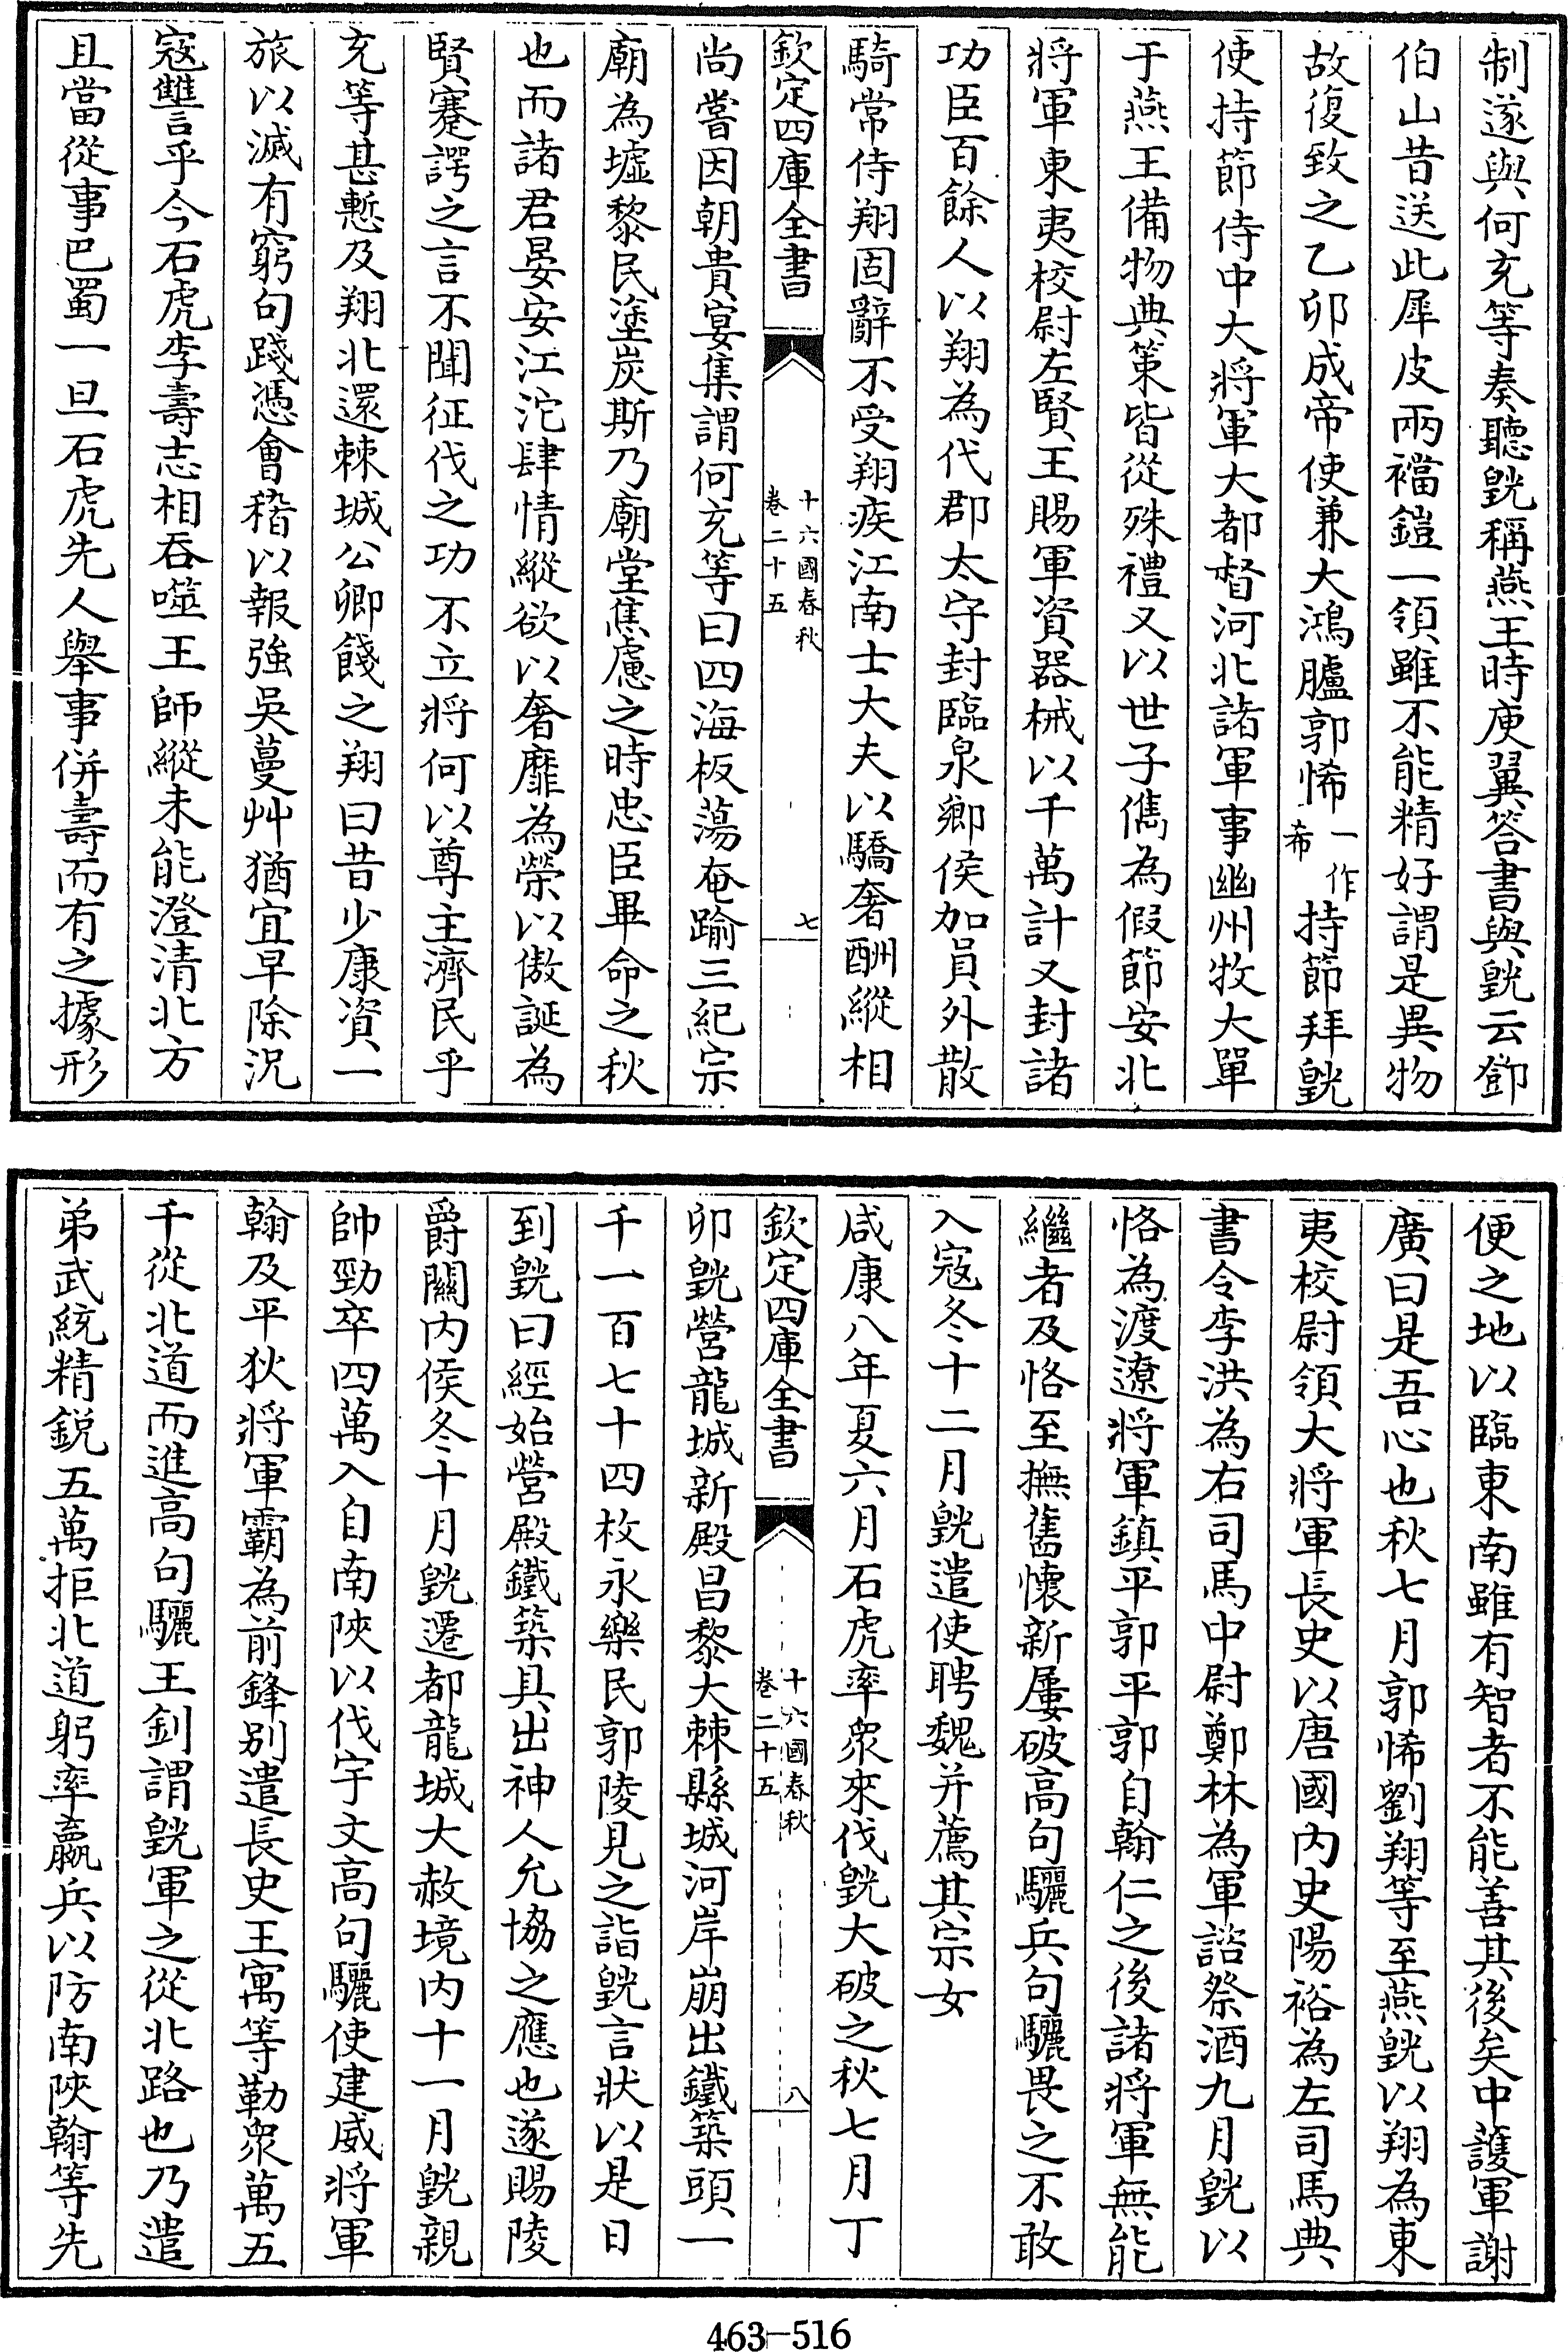 制遂與何充等奏聽皝稱燕王時庾翼答書與皝云鄧
伯山昔送此犀皮兩襠鎧一領雖不能精好謂是異物
故復致之乙卯成帝使兼大鴻臚郭悕一作希持節拜皝
使持節侍中大將軍大都督河北諸軍事幽州牧大單
于燕王備物典策皆從殊禮又以世子儁為假節安北
將軍東夷校尉左賢王賜軍資器械以千萬計又封諸
功臣百餘人以翔為代郡太守封臨泉鄉侯加員外散
騎常侍翔固辭不受翔疾江南士大夫以驕奢酬縱相
欽定四庫全書
十六國春秋
卷二十五
七
尚嘗因朝貴宴集謂何充等曰四海板蕩奄踰三紀宗
廟為墟黎民塗炭斯乃廟堂焦慮之時忠臣畢命之秋
也而諸君晏安江沱肆情縱欲以奢靡為榮以傲誕為
賢蹇諤之言不聞征伐之功不立將何以尊主濟民乎
充等甚慙及翔北還棘城公卿餞之翔曰昔少康資一
旅以滅有窮句踐憑會稽以報強吳蔓艸猶宜早除況
寇讐乎今石虎李壽志相吞噬王師縱未能澄清北方
且當從事巴蜀一旦石虎先人舉事併壽而有之據形
便之地以臨東南雖有智者不能善其後矣中護軍謝
廣曰是吾心也秋七月郭悕劉翔等至燕皝以翔為東
夷校尉領大將軍長史以唐國內史陽裕為左司馬典
書令李洪為右司馬中尉鄭林為軍諮祭酒九月皝以
恪為渡遼將軍鎮平郭平郭自翰仁之後諸將軍無能
繼者及恪至撫舊懷新屢破高句驪兵句驪畏之不敢
入寇冬十二月皝遣使聘魏并薦其宗女
咸康八年夏六月石虎率眾來伐皝大破之秋七月丁
欽定四庫全書
十六國春秋
卷二十五
八
卯皝營龍城新殿昌黎大棘縣城河岸崩出鐵築頭一
千一百七十四枚永樂民郭陵見之詣皝言狀以是日
到皝曰經始營殿鐵築具出神人允協之應也遂賜陵
爵關內侯冬十月皝遷都龍城大赦境內十一月皝親
帥勁卒四萬入自南陝以伐宇文高句驪使建威將軍
翰及平狄將軍霸為前鋒別遣長史王寓等勒眾萬五
千從北道而進高句驪王釗謂皝軍之從北路也乃遣
弟武統精銳五萬拒北道躬率羸兵以防南陝翰等先
463-516